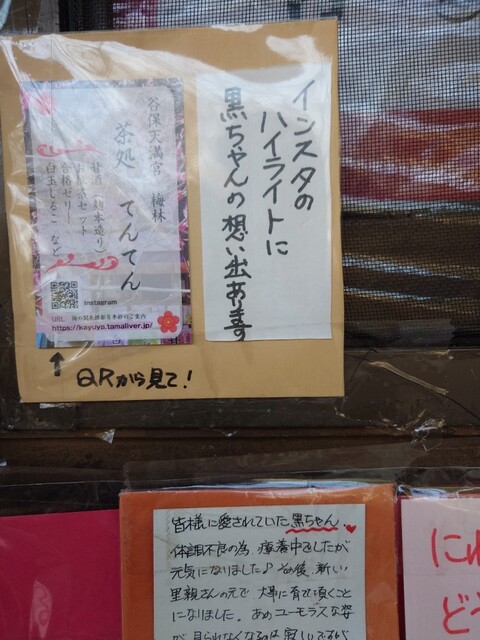 インスタの
ハイライトに
黒ちゃんの想い出あります
谷保天満宮 梅林
茶処 てんてん
お抹茶セット
合格ゼリー
白玉しるこ など
Instagram
URL 梅の開花撮影日本酒のご案内
https://kayuya.tamaliver.jp/
↑
QRから見て!
皆様に愛されていた黒ちゃん♥
体調不良の為、療養中でしたが
元気になりました♪ その後、新しい
里親さんの元で 大事に育て頂くこと
になりました。あのユーモラスな姿
が見られなくなるのは寂しいですが
にれ
どう